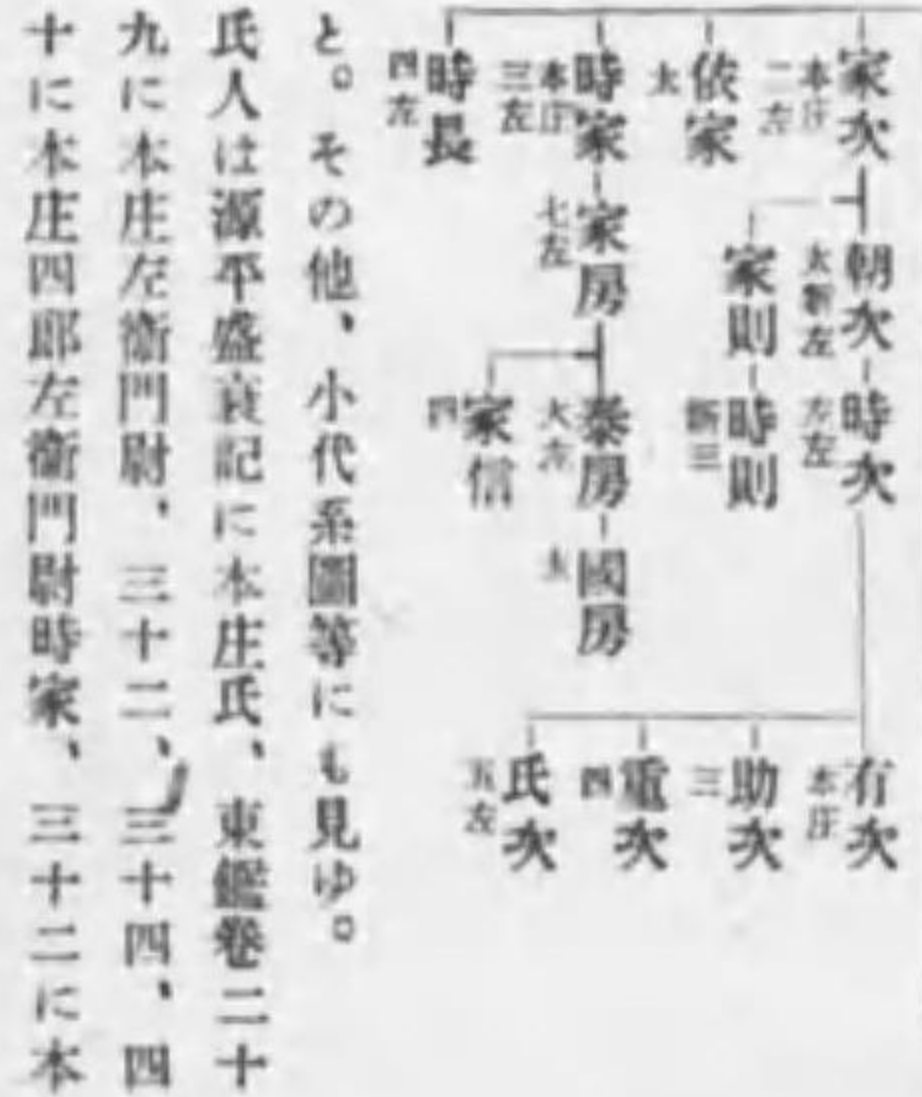 家次
本庄
二左
朝次
太新左
時次
左左
有次
本庄
助次
三
重次
四
氏次
五左
家則
時則
新三
依家
太
時家
本庄
三左
家房
七左
泰房
國房
太
家信
四
時長
四左
と。その他、小代系圖等にも見ゆ。
氏人は源平盛衰記に本庄氏、東鑑卷二十
九に本庄左衞門尉、三十二、三十四、四
十に本庄四郎左衞門尉時家、三十二に本